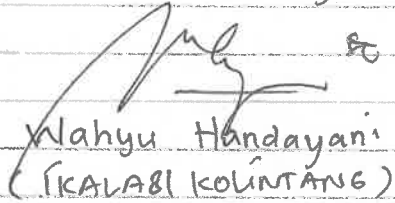 Wahyu Handayani
(IKALABI KOLINTANG)